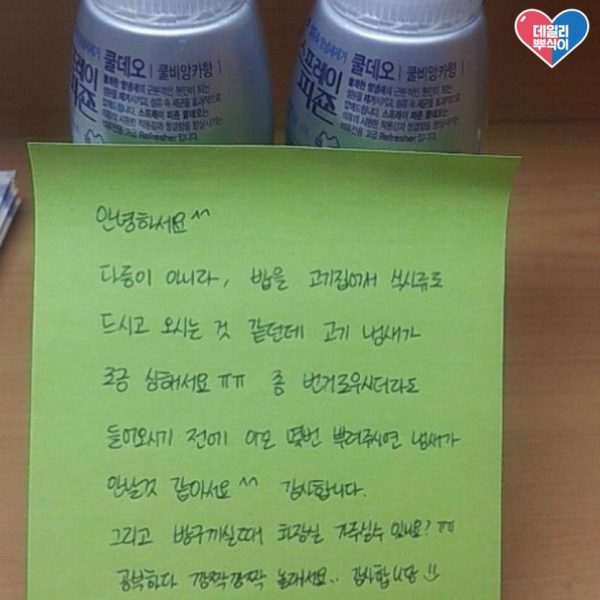 데일리
뿌식이
쿨데오 | 쿨비앙카향
스프레이
피죤
쿨데오 | 쿨비앙카향
스프레이
피죤
안녕하세요^^
다름이 아니라, 밥을 고기집에서 식사류로
드시고 오시는 것 같던데 고기 냄새가
조금 심해서요ㅠㅠ 좀 번거로우시더라도
들어오시기 전에 이모 몇번 뿌려주시면 냄새가
안날것 같아서요^^ 감사합니다.
그리고 방구끼실때 화장실 가주실수 있나요? ㅠㅠ
공부하다 깜짝깜짝 놀래서요.. 감사합니당